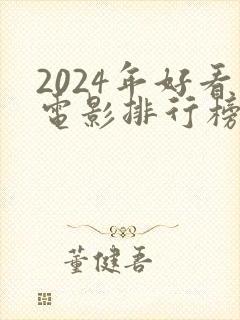 2024年好看
电影排行榜
董健吾